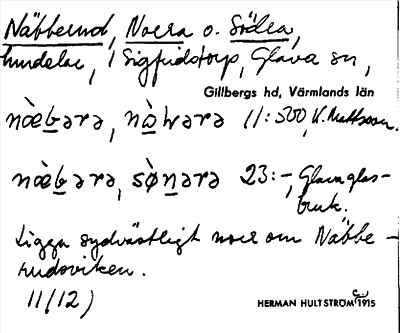 Näbberud, Norra o. Södra,
hmdelar, i Sigfridstorp, Glava sn,
Gillbergs hd, Värmlands län
næ̀bərə, nàrərə 11:500, K. Mattsson.
næ̀bərə, sø̀nərə 23:-, Glava glas-
bruk.
Ligga sydvästligt norr om Näbbe-
rudsviken.
11(12)
HERMAN HULTSTRÖM 1915